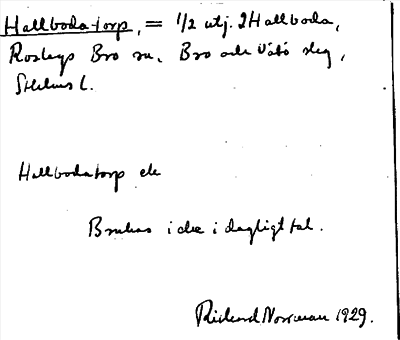 Hallboda-torp, = 1/2 utj. 2 Hallboda,
Roslags Bro sn, Bro och Vätö slg,
Sthlms l.
Hallbodatorp ele
Brukas icke i dagligt tal.
Rickard Norrman 1929.